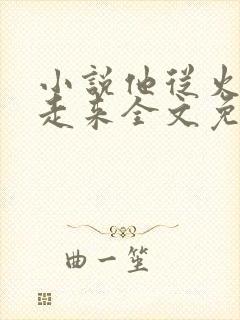 小說他從火
走來全文免
曲一笙